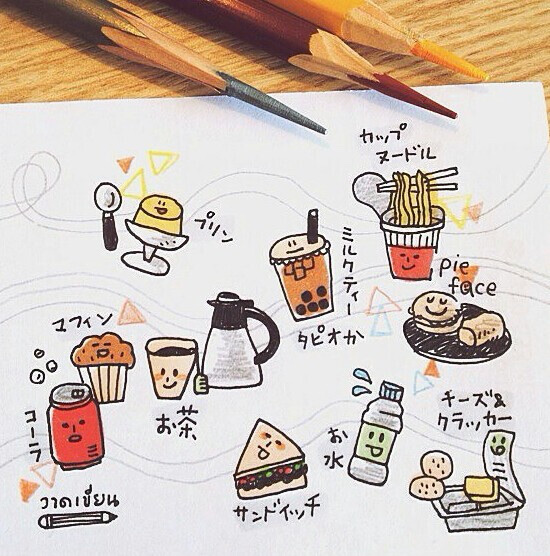 カップ
ヌードル
プリン
ミルクティー
タピオカ
pie
face
マフィン
お茶
コーラ
チーズ&
クラッカー
お
水
サンドイッチ
วาดเขียน